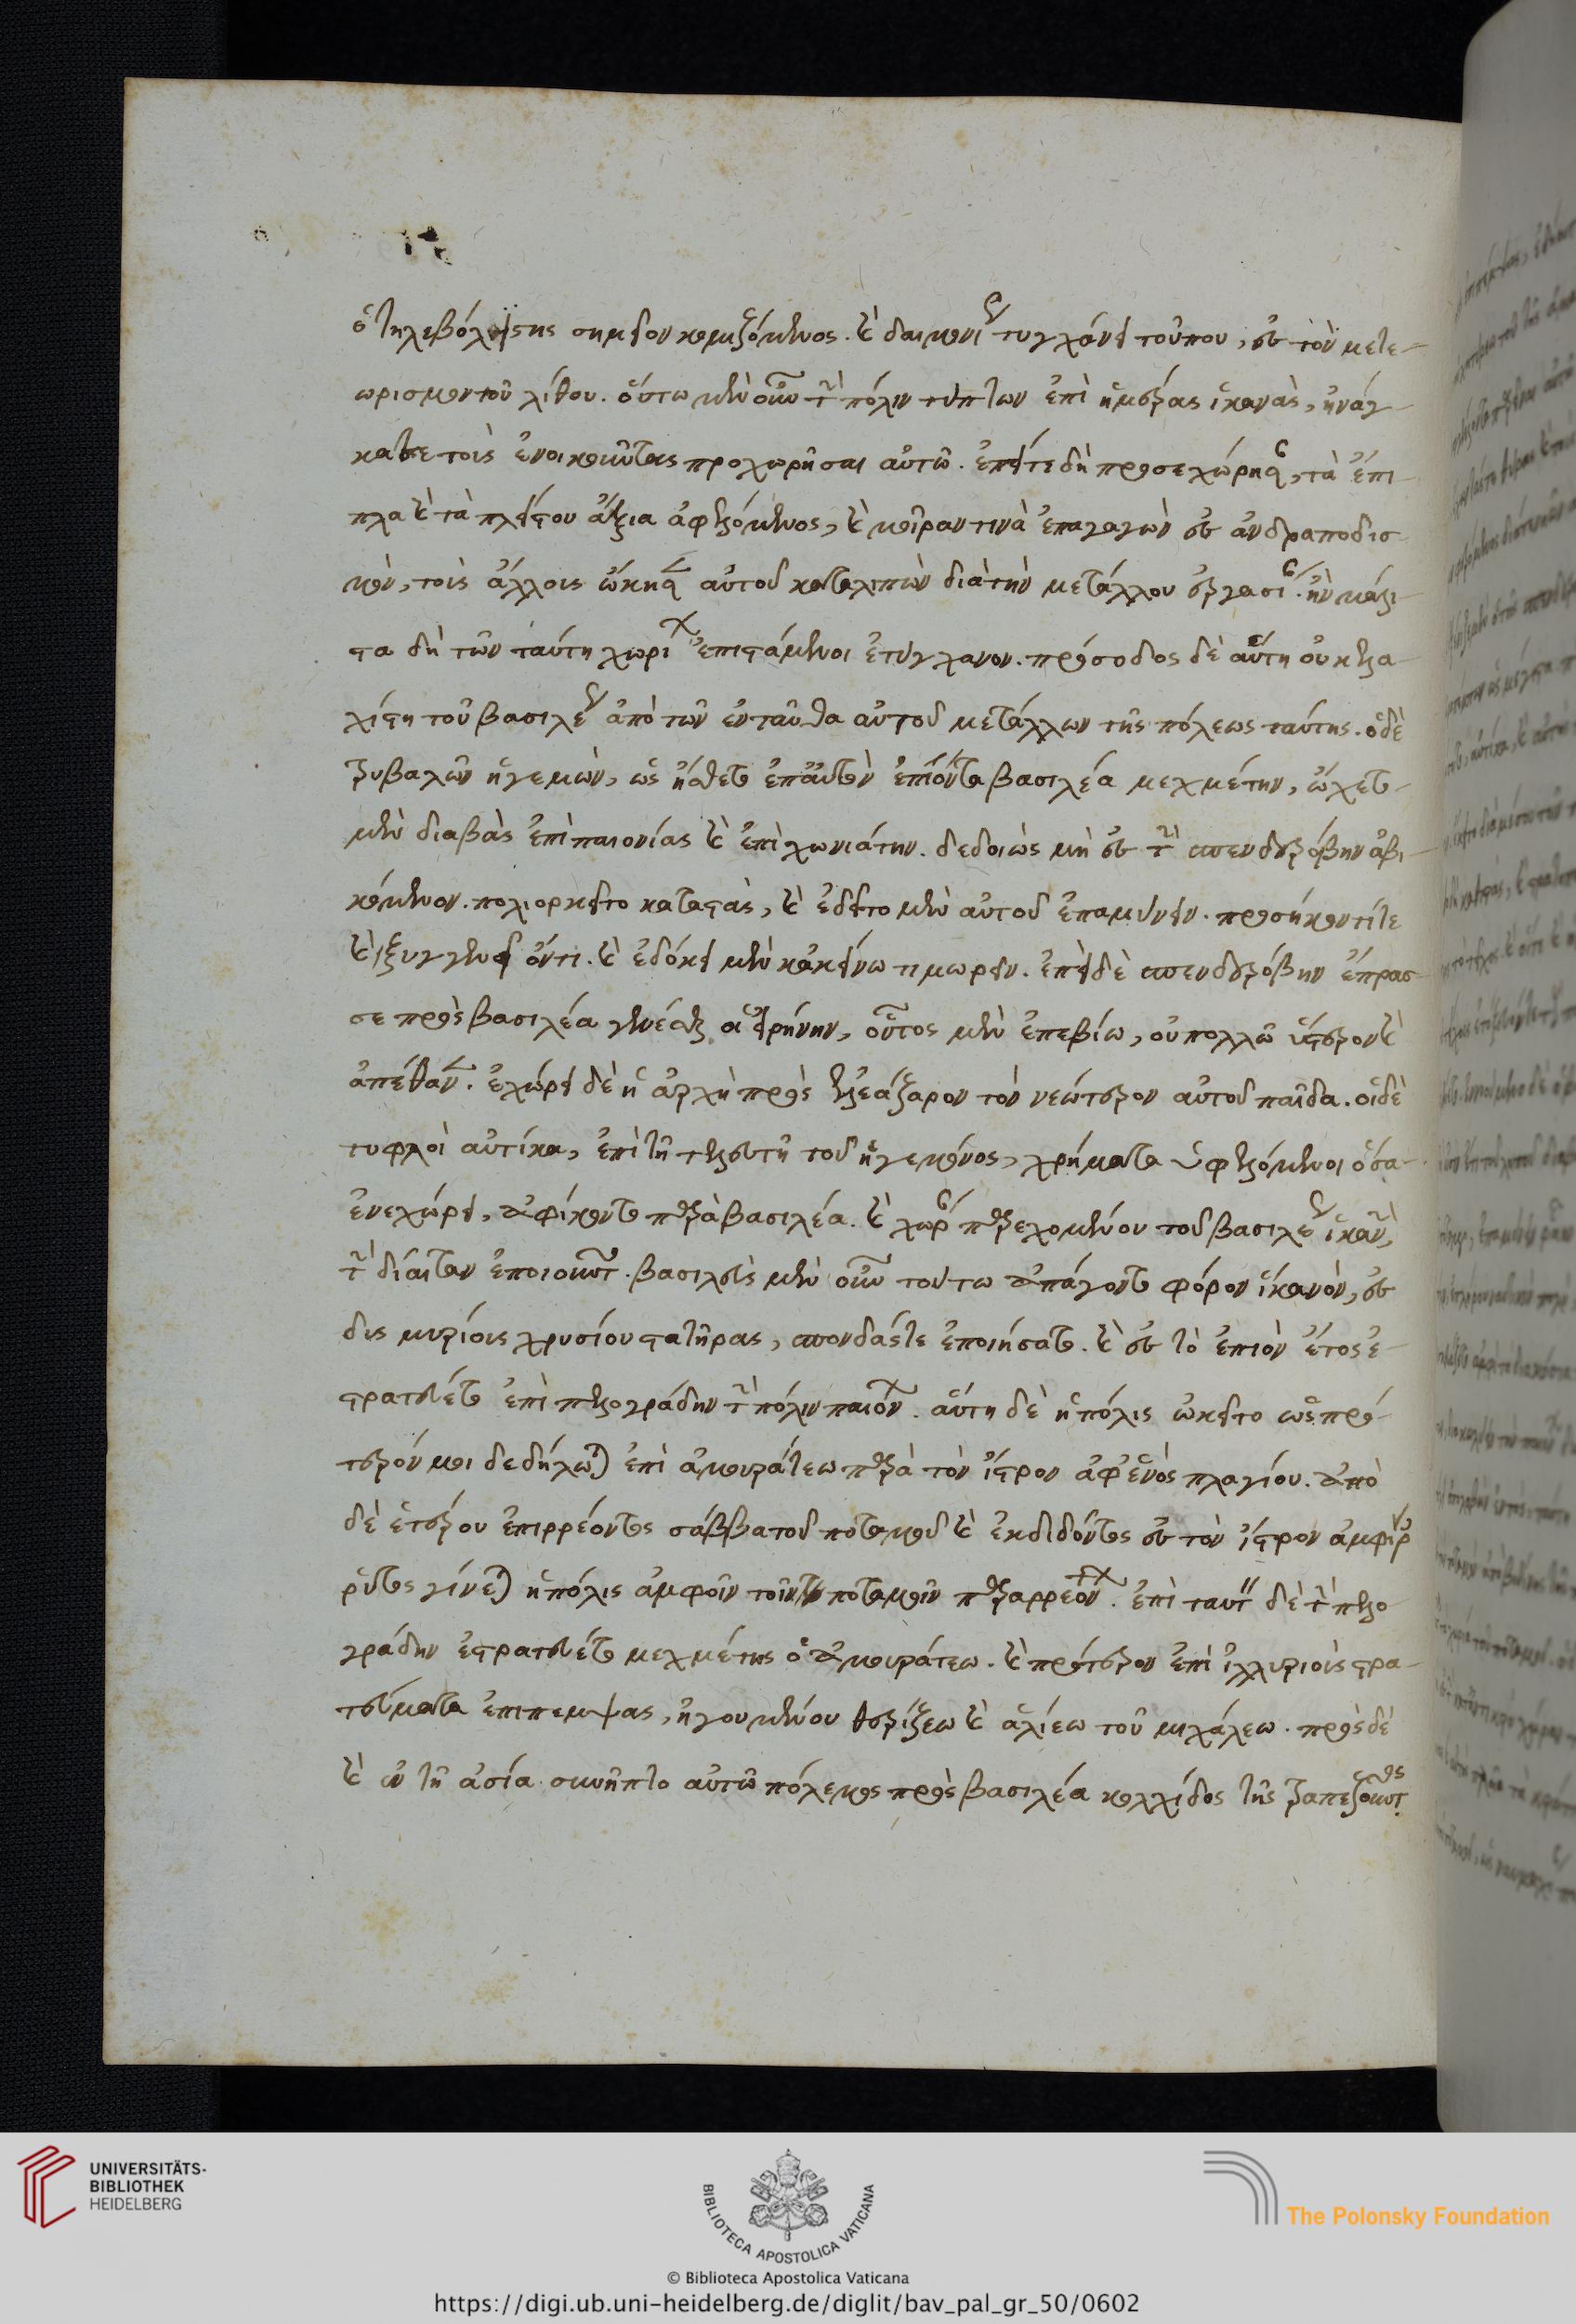 ὁ τηλεβολιστὴς σημεῖον κομιζόμενος. καὶ δαιμονίως τυγχάνει τούπου, ἐς τὸν μετε-
ωρισμὸν τοῦ λίθου. οὕτω μὲν οὖν τὴν πόλιν τύπτων ἐπὶ ἡμέρας ἱκανὰς, ἠνάγ-
κασε τοὺς ἐνοικοῦντας προχωρῆσαι αὐτῶ. ἐπεί τε δὴ προσεχώρησε, τὰ ἔπι-
πλα καὶ τὰ πλείστου ἄξια ἀφελόμενος, καὶ μοῖραν τινὰ ἐπαγαγὼν ἐς ἀνδραποδισ-
μὸν, τοὺς ἄλλους αὐτοῦ καταλιπὼν διὰ τὴν μετάλλου ἐργασίαν. ἣν μάλι-
στα δὴ τῶν ταύτη χωρίων ἐπιστάμενοι ἐτύγχανον. πρόσοδος δὲ αὕτη οὐκ ἐλα-
χίστη τοῦ βασιλέως ἀπὸ τῶν ἐνταῦθα αὐτοῦ μετάλλων τῆς πόλεως ταύτης. ὁ δὲ
τριβαλῶν ἡγεμὼν, ὡς ἤσθετο ἐπ' αὐτὸν ἐπιόντα βασιλέα μεχμέτην, ὤχετο
μὲν διαβὰς ἐπὶ παιονίας καὶ ἐπὶ χωνιάτην. δεδοιὼς μὴ ἐς τὴν σπενδερόβην ἀφι-
κόμενον. πολιορκεῖτο καταστὰς, καὶ ἐδεῖτο μὲν αὐτοῦ ἐπαμύνειν. προσήκοντί τε
καὶ ξυγγενεῖ ὄντι. καὶ ἐδόκει μὲν κἀκείνω τιμωρεῖν. ἐπεὶ δὲ σπενδερόβην ἔπρασ-
σε πρὸς βασιλέα γενέσθαι οἱ εἰρήνην, οὗτος μὲν ἐπεβίω, οὐ πολλῶ ὕστερον καὶ
ἀπέθανεν. ἐχώρει δὲ ἡ ἀρχὴ πρὸς ἐλεάζαρον τὸν νεώτερον αὐτοῦ παῖδα. οἱ δὲ
τυφλοὶ αὐτίκα, ἐπὶ τῆ τελευτῆ τοῦ ἡγεμόνος, χρήματα ὑφελόμενοι ὅσα
ἐνεχώρει, ἀφίκοντο παρὰ βασιλέα. καὶ χώραν παρεχομένου τοῦ βασιλέως ἱκανὴν,
τὴν δίαιταν ἐποιοῦντο. βασιλεὺς μὲν οὖν τούτω ἀπάγοντι φόρον ἱκανὸν, ἐς
δις μυρίους χρυσίου στατῆρας, σπονδάς τε ἐποιήσατο. καὶ ἐς τὸ ἐπιὸν ἔτος ἐ-
στρατεύετο ἐπὶ πελογράδην τὴν πόλιν παιόνων. αὕτη δὲ ἡ πόλις ὠκεῖτο ὡς πρό-
τερόν μοι δεδήλωται ἐπὶ ἀμουράτεω παρὰ τὸν ἴστρον ἀφ' ἑνὸς πλαγίου. ἀπὸ
δὲ ἑτέρου ἐπιρρέοντος σάββα τοῦ ποταμοῦ καὶ ἐκδιδόντος ἐς τὸν ἴστρον ἀμφίρ
ρυτος γίνεται ἡ πόλις ἀμφοῖν τοῖν ποταμοῖν παραρρεόντων. ἐπὶ ταύτην δὲ τὴν πελο
γράδην ἐστρατεύετο μεχμέτης ὁ ἀμουράτεω. καὶ πρότερον ἐπὶ ἰλλυριοὺς στρα-
τεύματα ἐπιπέμψας, ἡγουμένου θερίζεω καὶ ἁλίεω τοῦ μιχάλεω. πρὸς δὲ
καὶ ἐν τῆ ἀσία συνῆπτο αὐτῶ πόλεμος πρὸς βασιλέα κολχίδος τῆς τραπεζοῦντος.
UNIVERSITÄTS-
BIBLIOTHEK
HEIDELBERG
BIBLIOTECA APOSTOLICA VATICANA
The Polonsky Foundation
© Biblioteca Apostolica Vaticana
https://digi.ub.uni-heidelberg.de/diglit/bav_pal_gr_50/0602